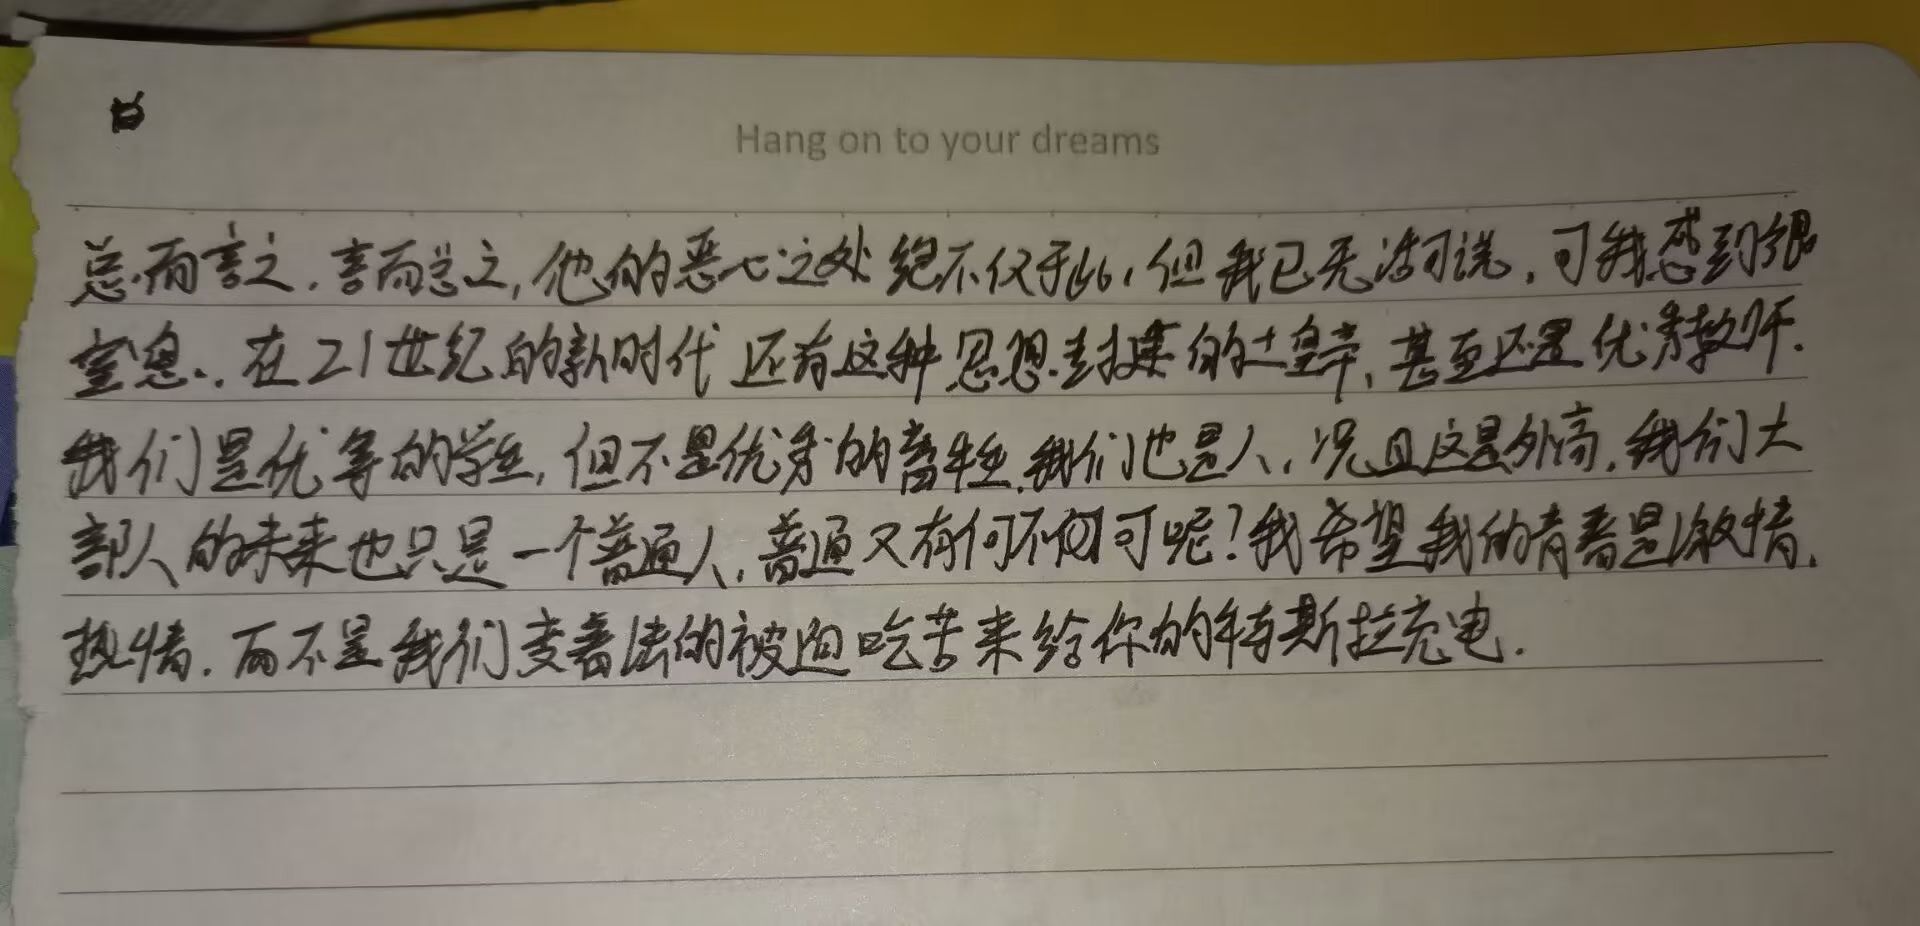 Hang on to your dreams
总而言之,言而总之,他的恶心之处绝不仅于此,但我已无话可说,可我感到很
窒息.,在21世纪的新时代还有这种思想封建的土皇帝,甚至还是优秀教师.
我们是优等的学生,但不是优秀的畜牲.我们也是人,况且这是外高,我们大
部人的未来也只是一个普通人,普通又有何不可呢?我希望我的青春是激情,
热情,而不是我们变着法的被迫吃苦来给你的特斯拉充电.